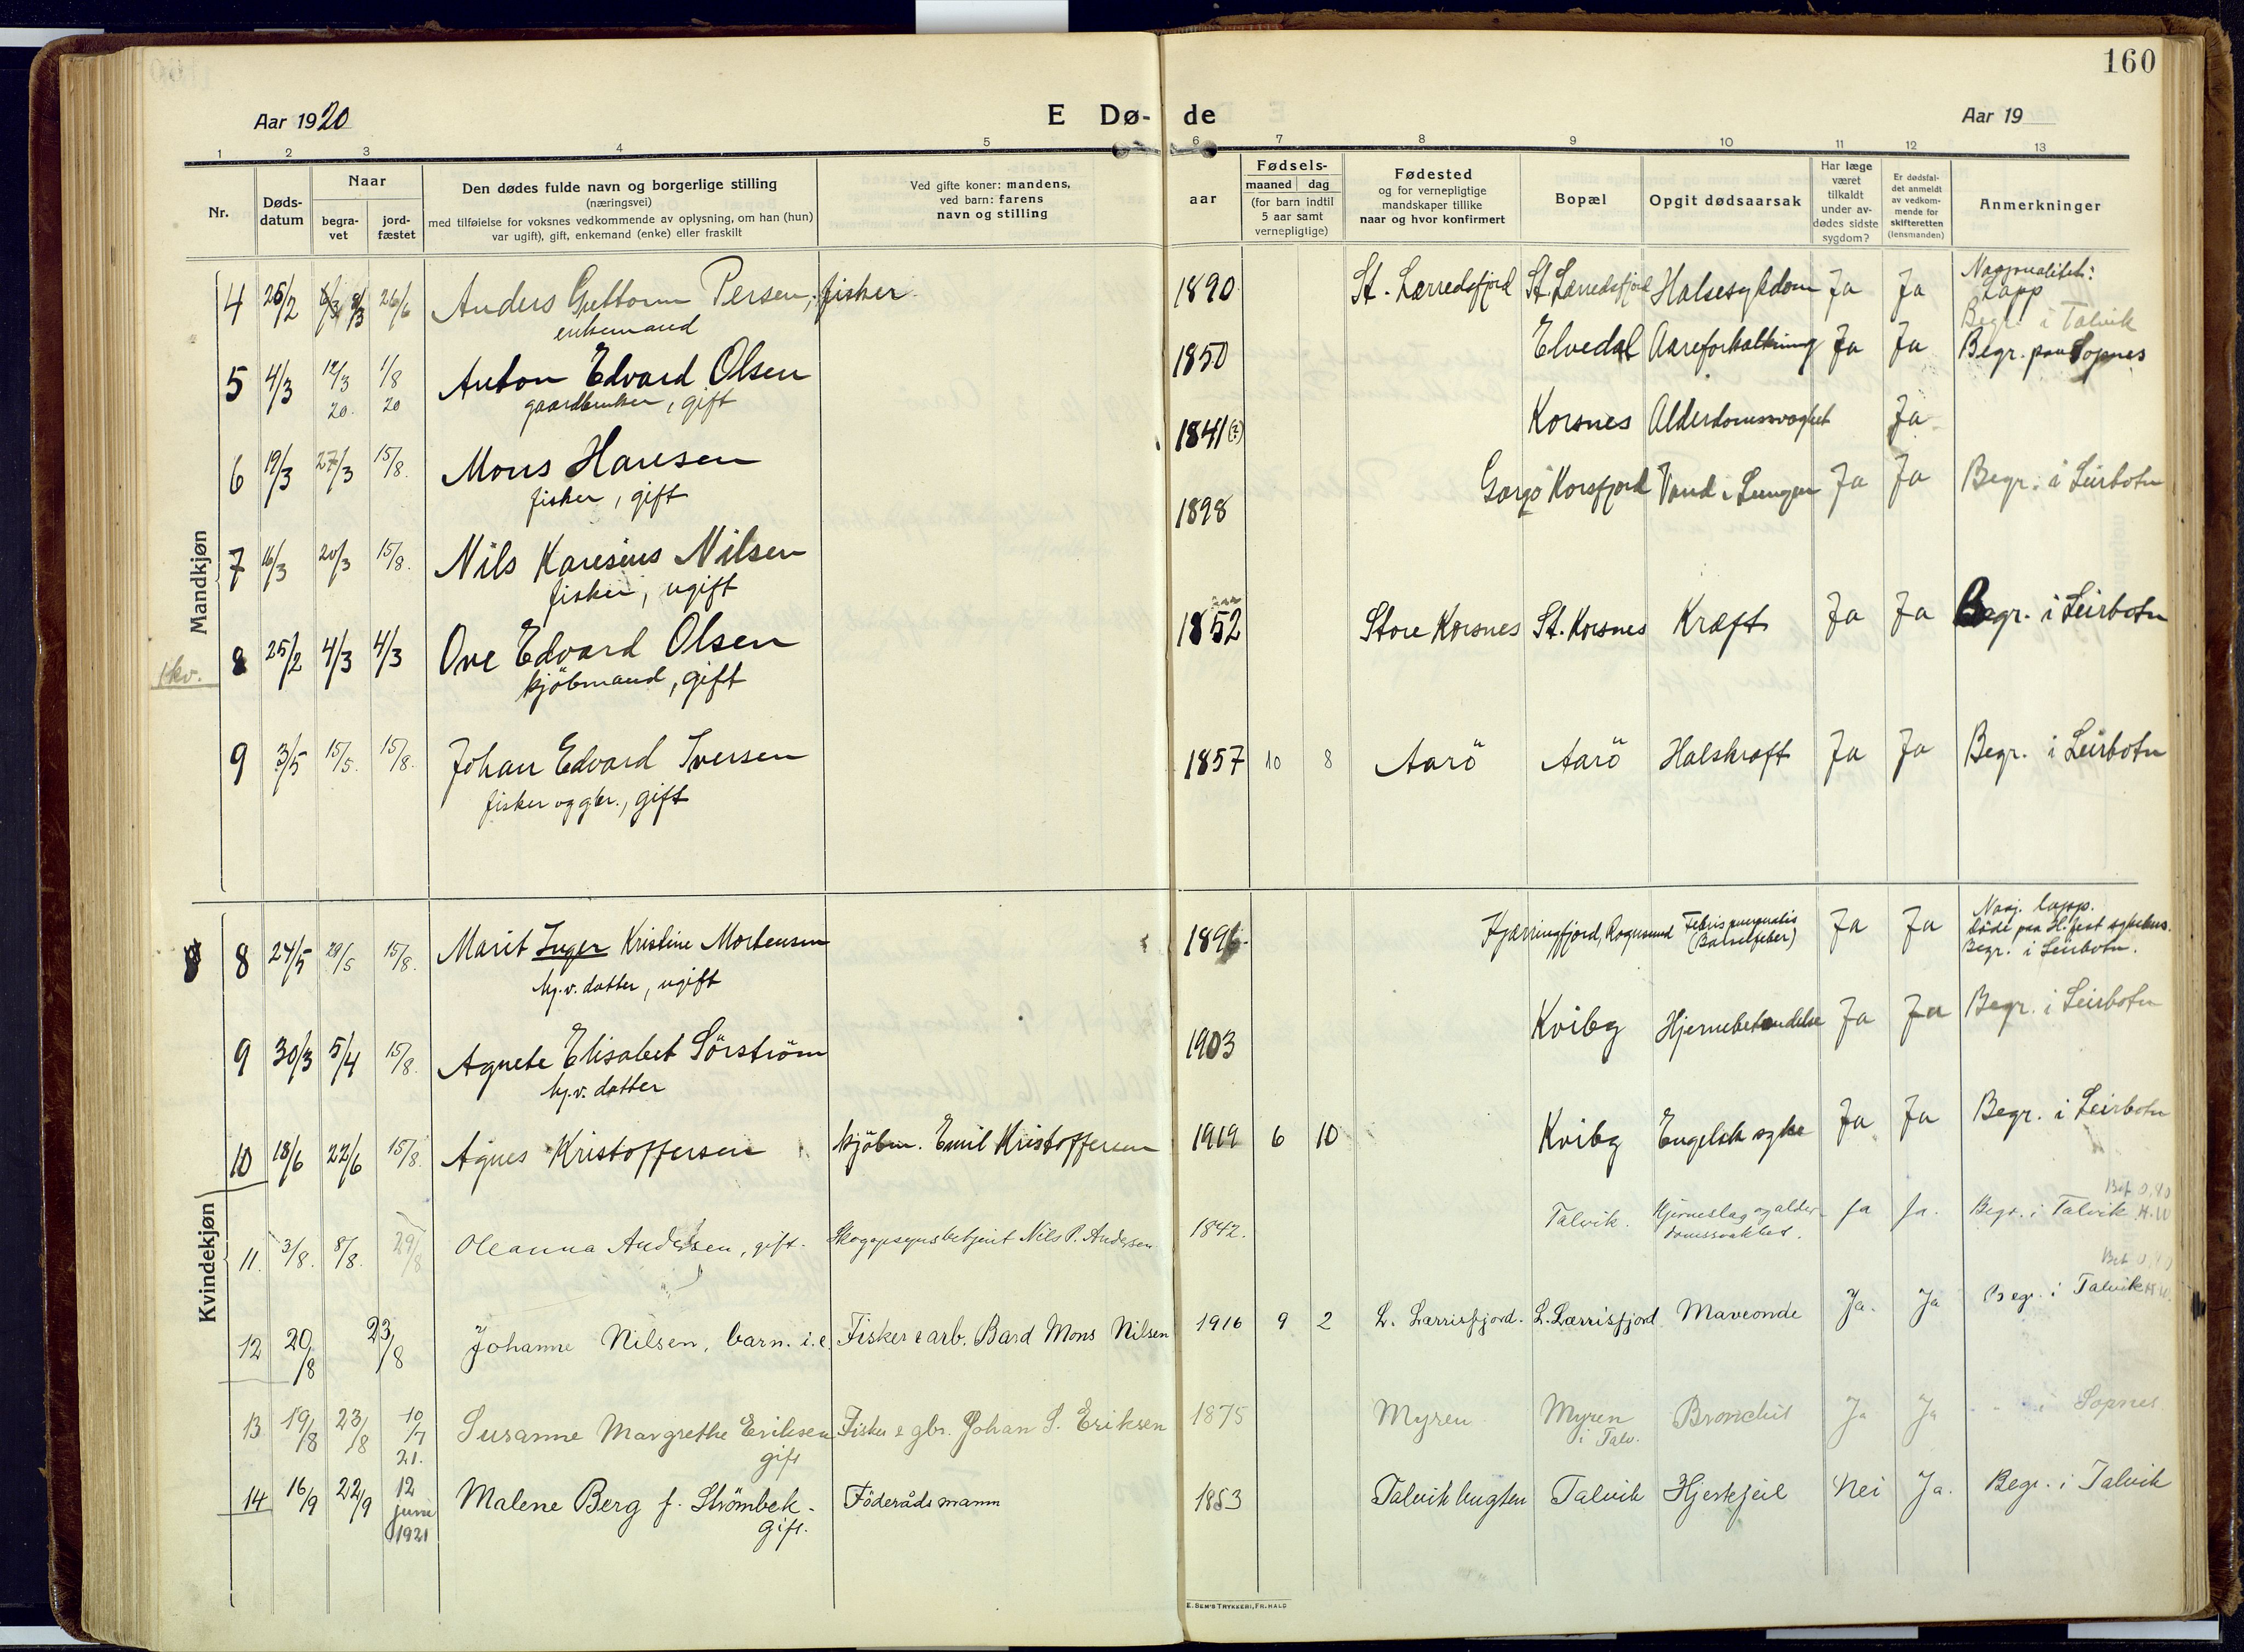 160
Aar 1920
E Dø-
de
Aar 19
1 2 3 4 5 6 7 8 9 10 11 12 13
Nr.
Døds-
datum
Naar
begra-
vet
jord-
fæstet
Den dødes fulde navn og borgerlige stilling
(næringsvei)
med tilføielse for voksnes vedkommende av oplysning, om han (hun)
var ugift), gift, enkemand (enke) eller fraskilt
Ved gifte koner: mandens,
ved barn: farens
navn og stilling
aar
Fødsels-
maaned dag
(for barn indtil
5 aar samt
vernepligtige)
Fødested
og for vernepligtige
mandskaper tillike
naar og hvor konfirmert
Bopæl
Opgit dødsaarsak
Har læge
været
tilkaldt
under av-
dødes sidste
sygdom?
Er dødsfal-
det anmeldt
av vedkom-
mende for
skifteretten
(lensmanden)
Anmerkninger
Mandkjøn
4 25/2 8/3 26/6 Anders Guttorm Persen, fisker 1890 St. Lærredsfjord St. Lærredsfjord Halsesykdom Ja Ja Nasjonalitet:
enkemand Lapp
Begr. i Talvik
5 4/3 12/3 1/8 Anton Edvard Olsen 1850 Elvedal Aareforkalkning Ja Ja Begr. paa Sopnes
20. 20 gaardbruker, gift
6 19/3 27/3 15/8. Mons Hansen 1841(?) Korsnes Alderdomssvaghet Ja
fisker, gift
7 16/3 20/3 15/8. Nils Karesius Nilsen 1898 Korsfjord Vand i Lungen Ja Ja Begr. i Leirbotn
fisker, ugift
1 kv.
8 25/2 4/3 4/3 Ove Edvard Olsen 1852 Store Korsnes St. Korsnes Kræft Ja Ja Begr. i Leirbotn
kjöbmand, gift
9 3/5 15/5. 15/8. Johan Edvard Iversen 1857 10 8 Aarö Aarö Halskræft Ja Ja Begr. i Leirbotn
fisker og gbr., gift
Kvindekjøn
8 24/5 29/5 15/8. Marit Inger Kristine Mortensen 1896 Kjærringfjord, Rognsund Febris puerperalis Ja Ja Nasj. lapp.
hj.v. datter, ugift (Barselfeber) Döde paa H.fest sykehus.
Begr. i Leirbotn.
9 30/3 5/4 15/8. Agnete Elisabet Sörström 1903 Kviby Hjernebetændelse Ja Ja Begr. i Leirbotn
hj.v. datter
10 18/6 22/6 15/8. Agnes Kristoffersen kjöbm. Emil Kristoffersen 1919 6 10 Kviby Engelsk syke Ja Ja Begr. i Leirbotn
11. 3/8. 8/8. 29/8 Oleanna Andersen, gift. Skogopsynsbetjent Nils P. Andersen 1842. Talvik. Hjerneslag og alder- Ja Ja. Begr. i Talvik
domssvakhet.
12 20/8 23/8 Johanne Nilsen, barn. i.e. Fisker & arb. Bard Mons Nilsen 1916 9 2 L. Lærrisfjord. L. Lærrisfjord Maveonde Ja. Ja Begr. i Talvik
13 19/8 23/8 10/7 Susanne Margrethe Eriksen Fisker & gbr. Johan S. Eriksen 1875 Myren Myren Bronchit Ja Ja " " i Sopnes
21. gift i Talv.
14 16/9 22/9 12 Malene Berg f. Strömbek. Föderådsmann 1853 Talvikbugten Talvik Hjertefeil Nei Ja. Begr. i Talvik
juni gift.
1921
E. SEM'S TRYKKERI, FR.HALD